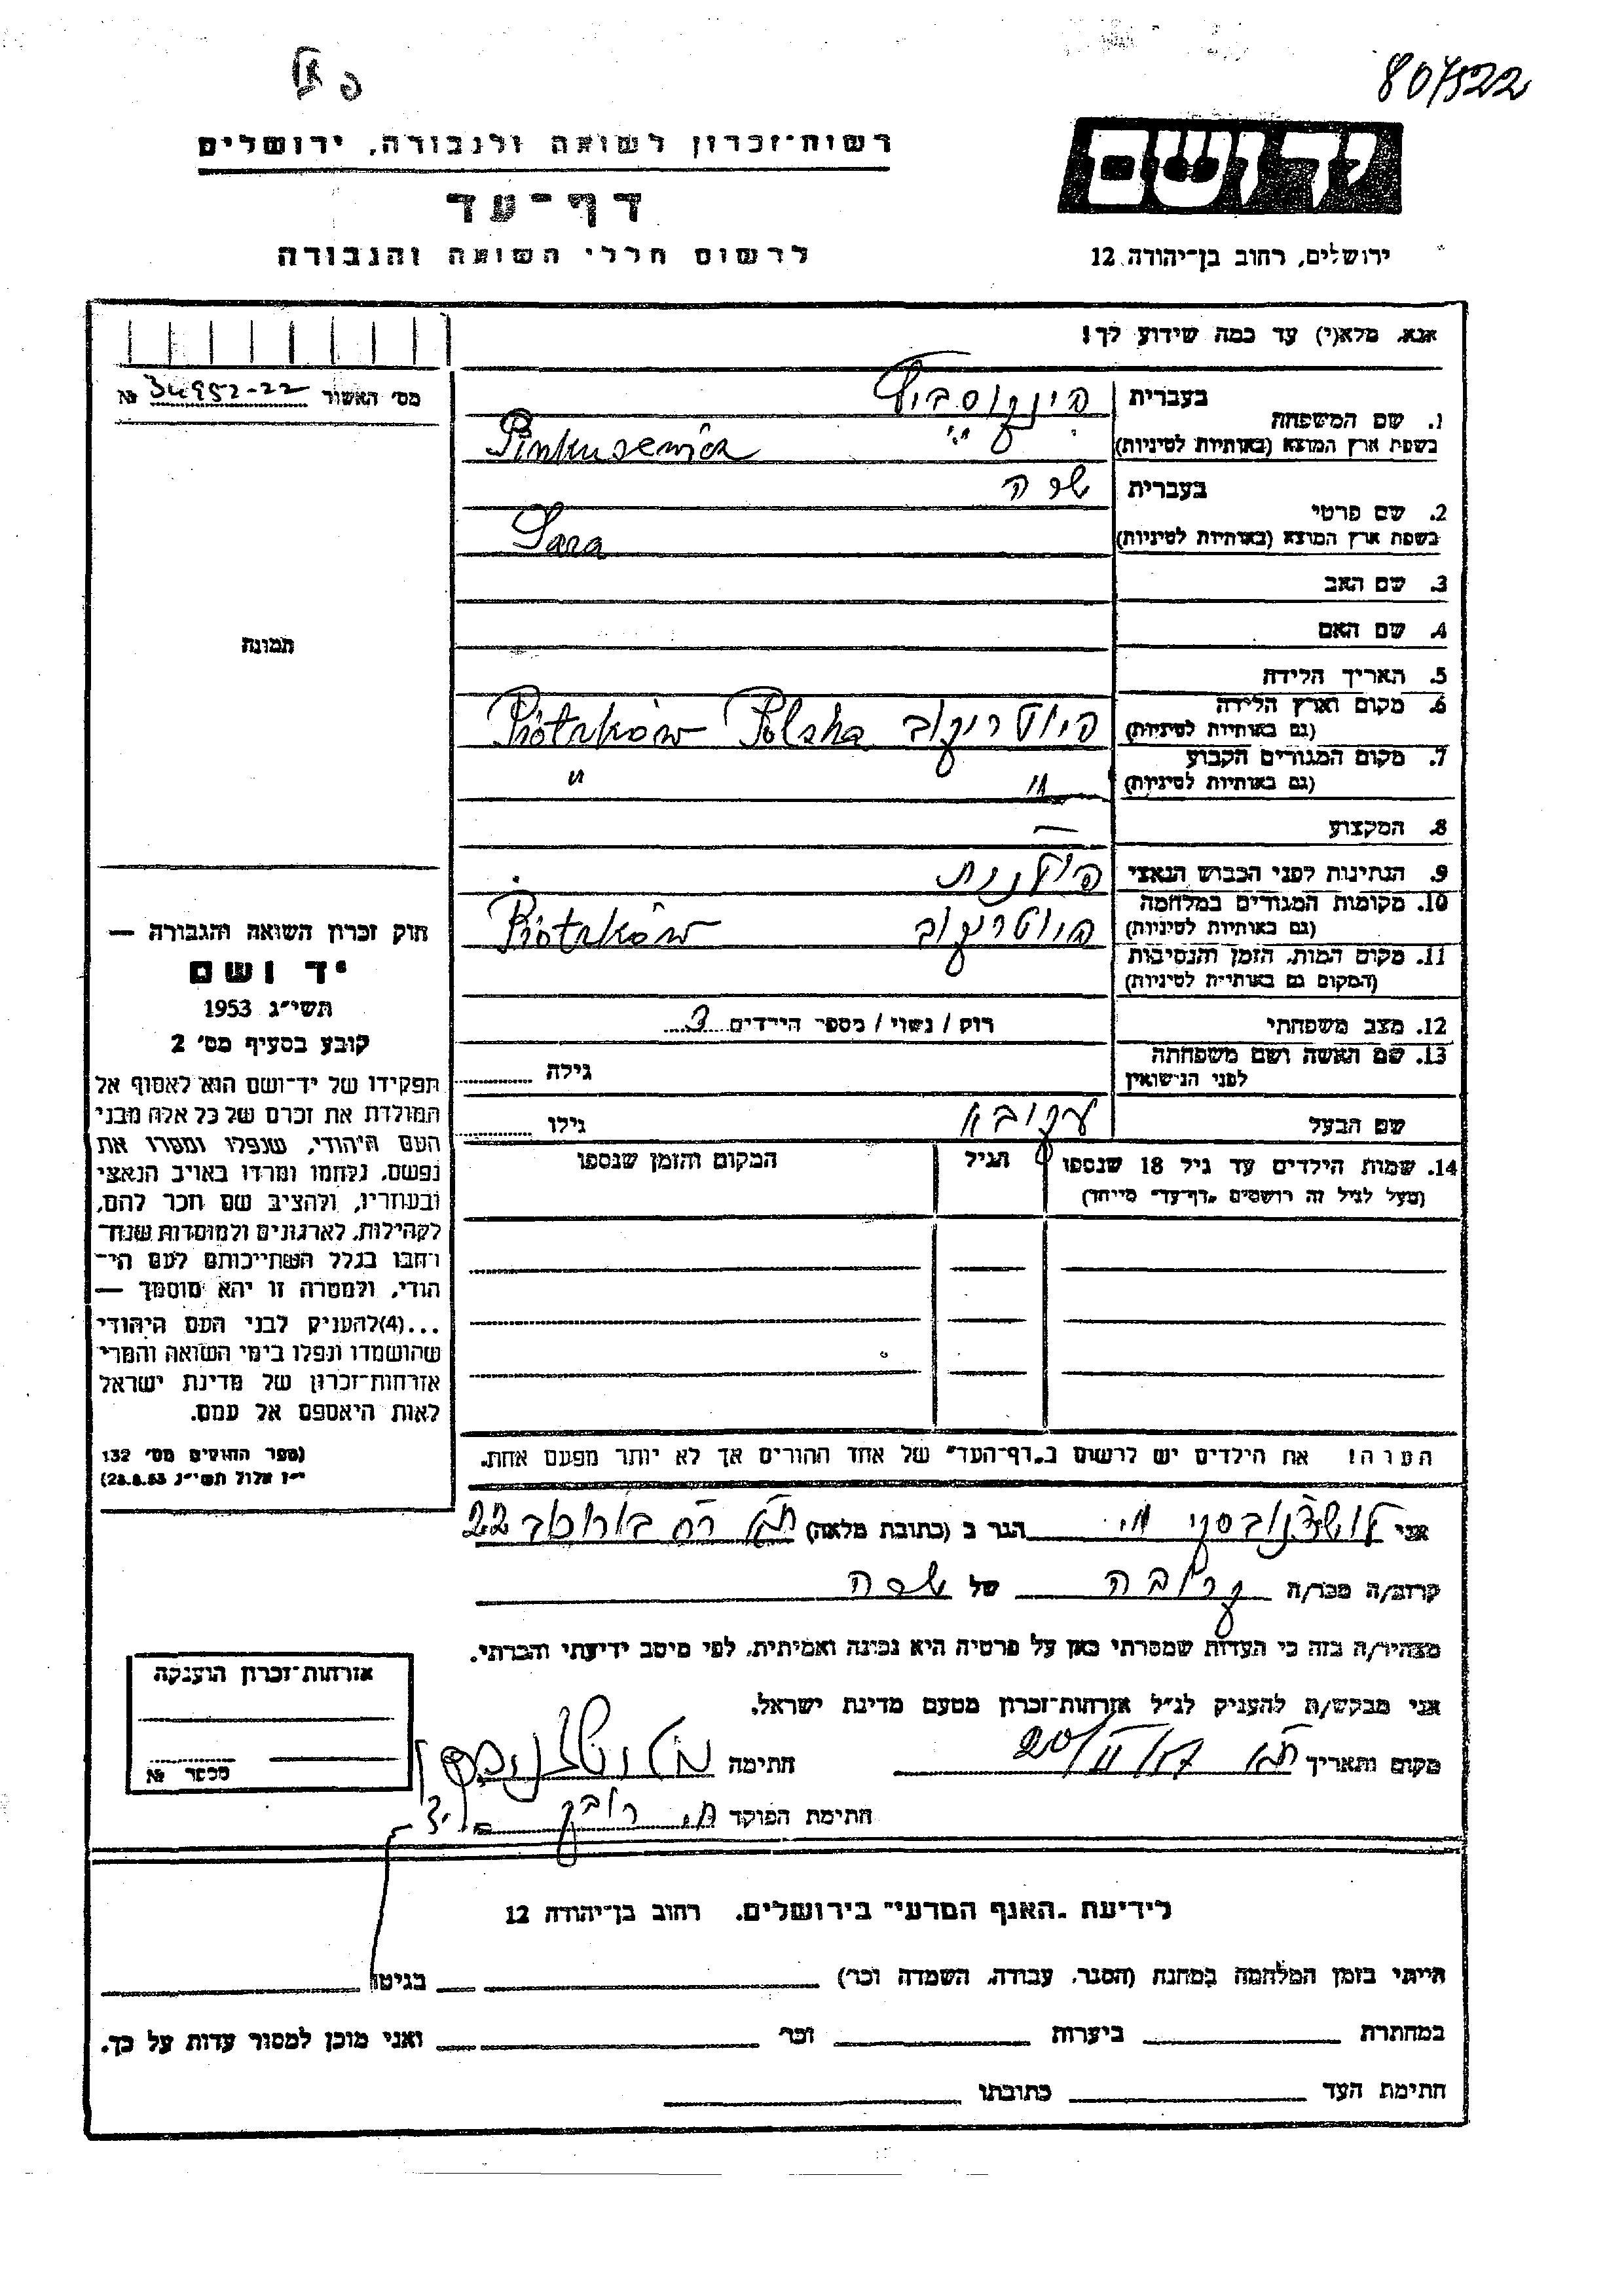 807522
רשות־זכרון לשואה ולגבורה, ירושלים
דף־עד
לרשום חללי השואה והגבורה
יד ושם
ירושלים, רחוב בן־יהודה 12
אנא, מלא(י) עד כמה שידוע לך!
מס׳ האשור 34952-22 №
1. שם המשפחה
בעברית
בשפת ארץ המוצא (באותיות לטיניות) Pinkusewicz
2. שם פרטי
בעברית שרה
בשפת ארץ המוצא (באותיות לטיניות) Sara
3. שם האב
4. שם האם
5. תאריך הלידה
6. מקום וארץ הלידה
(גם באותיות לטיניות) פיוטרקוב Piotrków Polska
7. מקום המגורים הקבוע
(גם באותיות לטיניות) " "
8. המקצוע —
9. הנתינות לפני הכבוש הנאצי פולנית
10. מקומות המגורים במלחמה
(גם באותיות לטיניות) פיוטרקוב Piotrków
11. מקום המות, הזמן והנסיבות
(המקום גם באותיות לטיניות)
12. מצב משפחתי רוק / נשוי / מספר הילדים 3
13. שם האשה ושם משפחתה
לפני הנישואין גילה
שם הבעל עקיבא גילו
14. שמות הילדים עד גיל 18 שנספו הגיל המקום והזמן שנספו
(מעל לגיל זה רושמים „דף־עד״ מיוחד)
הערה! את הילדים יש לרשום ב„דף־העד״ של אחד ההורים אך לא יותר מפעם אחת.
תמונה
חוק זכרון השואה והגבורה —
יד ושם
תשי״ג 1953
קובע בסעיף מס׳ 2
תפקידו של יד־ושם הוא לאסוף אל
המולדת את זכרם של כל אלה מבני
העם היהודי, שנפלו ומסרו את
נפשם, נלחמו ומרדו באויב הנאצי
ובעוזריו, ולהציב שם וזכר להם,
לקהילות, לארגונים ולמוסדות שנח־
רבו בגלל השתייכותם לעם הי־
הודי, ולמטרה זו יהא מוסמך —
...(4) להעניק לבני העם היהודי
שהושמדו ונפלו בימי השואה והמרי
אזרחות־זכרון של מדינת ישראל
לאות היאספם אל עמם.
(ספר החוקים מס׳ 132
י״ז אלול תשי״ג 28.8.53)
אני הגר ב (כתובת מלאה) ת"א 22
קרוב/ה מכר/ה קרובה של שרה
מצהיר/ה בזה כי העדות שמסרתי כאן על פרטיה היא נכונה ואמיתית, לפי מיטב ידיעתי והכרתי.
אני מבקש/ת להעניק לנ״ל אזרחות־זכרון מטעם מדינת ישראל.
מקום ותאריך ת"א 20/II/57 חתימה
חתימת הפוקד
אזרחות־זכרון הוענקה
מספר №
לידיעת „האגף המדעי״ בירושלים, רחוב בן־יהודה 12
הייתי בזמן המלחמה במחנה (הסגר, עבודה, השמדה וכו׳) בגיטו
במחתרת ביערות וכו׳ ואני מוכן למסור עדות על כך.
חתימת העד כתובתו